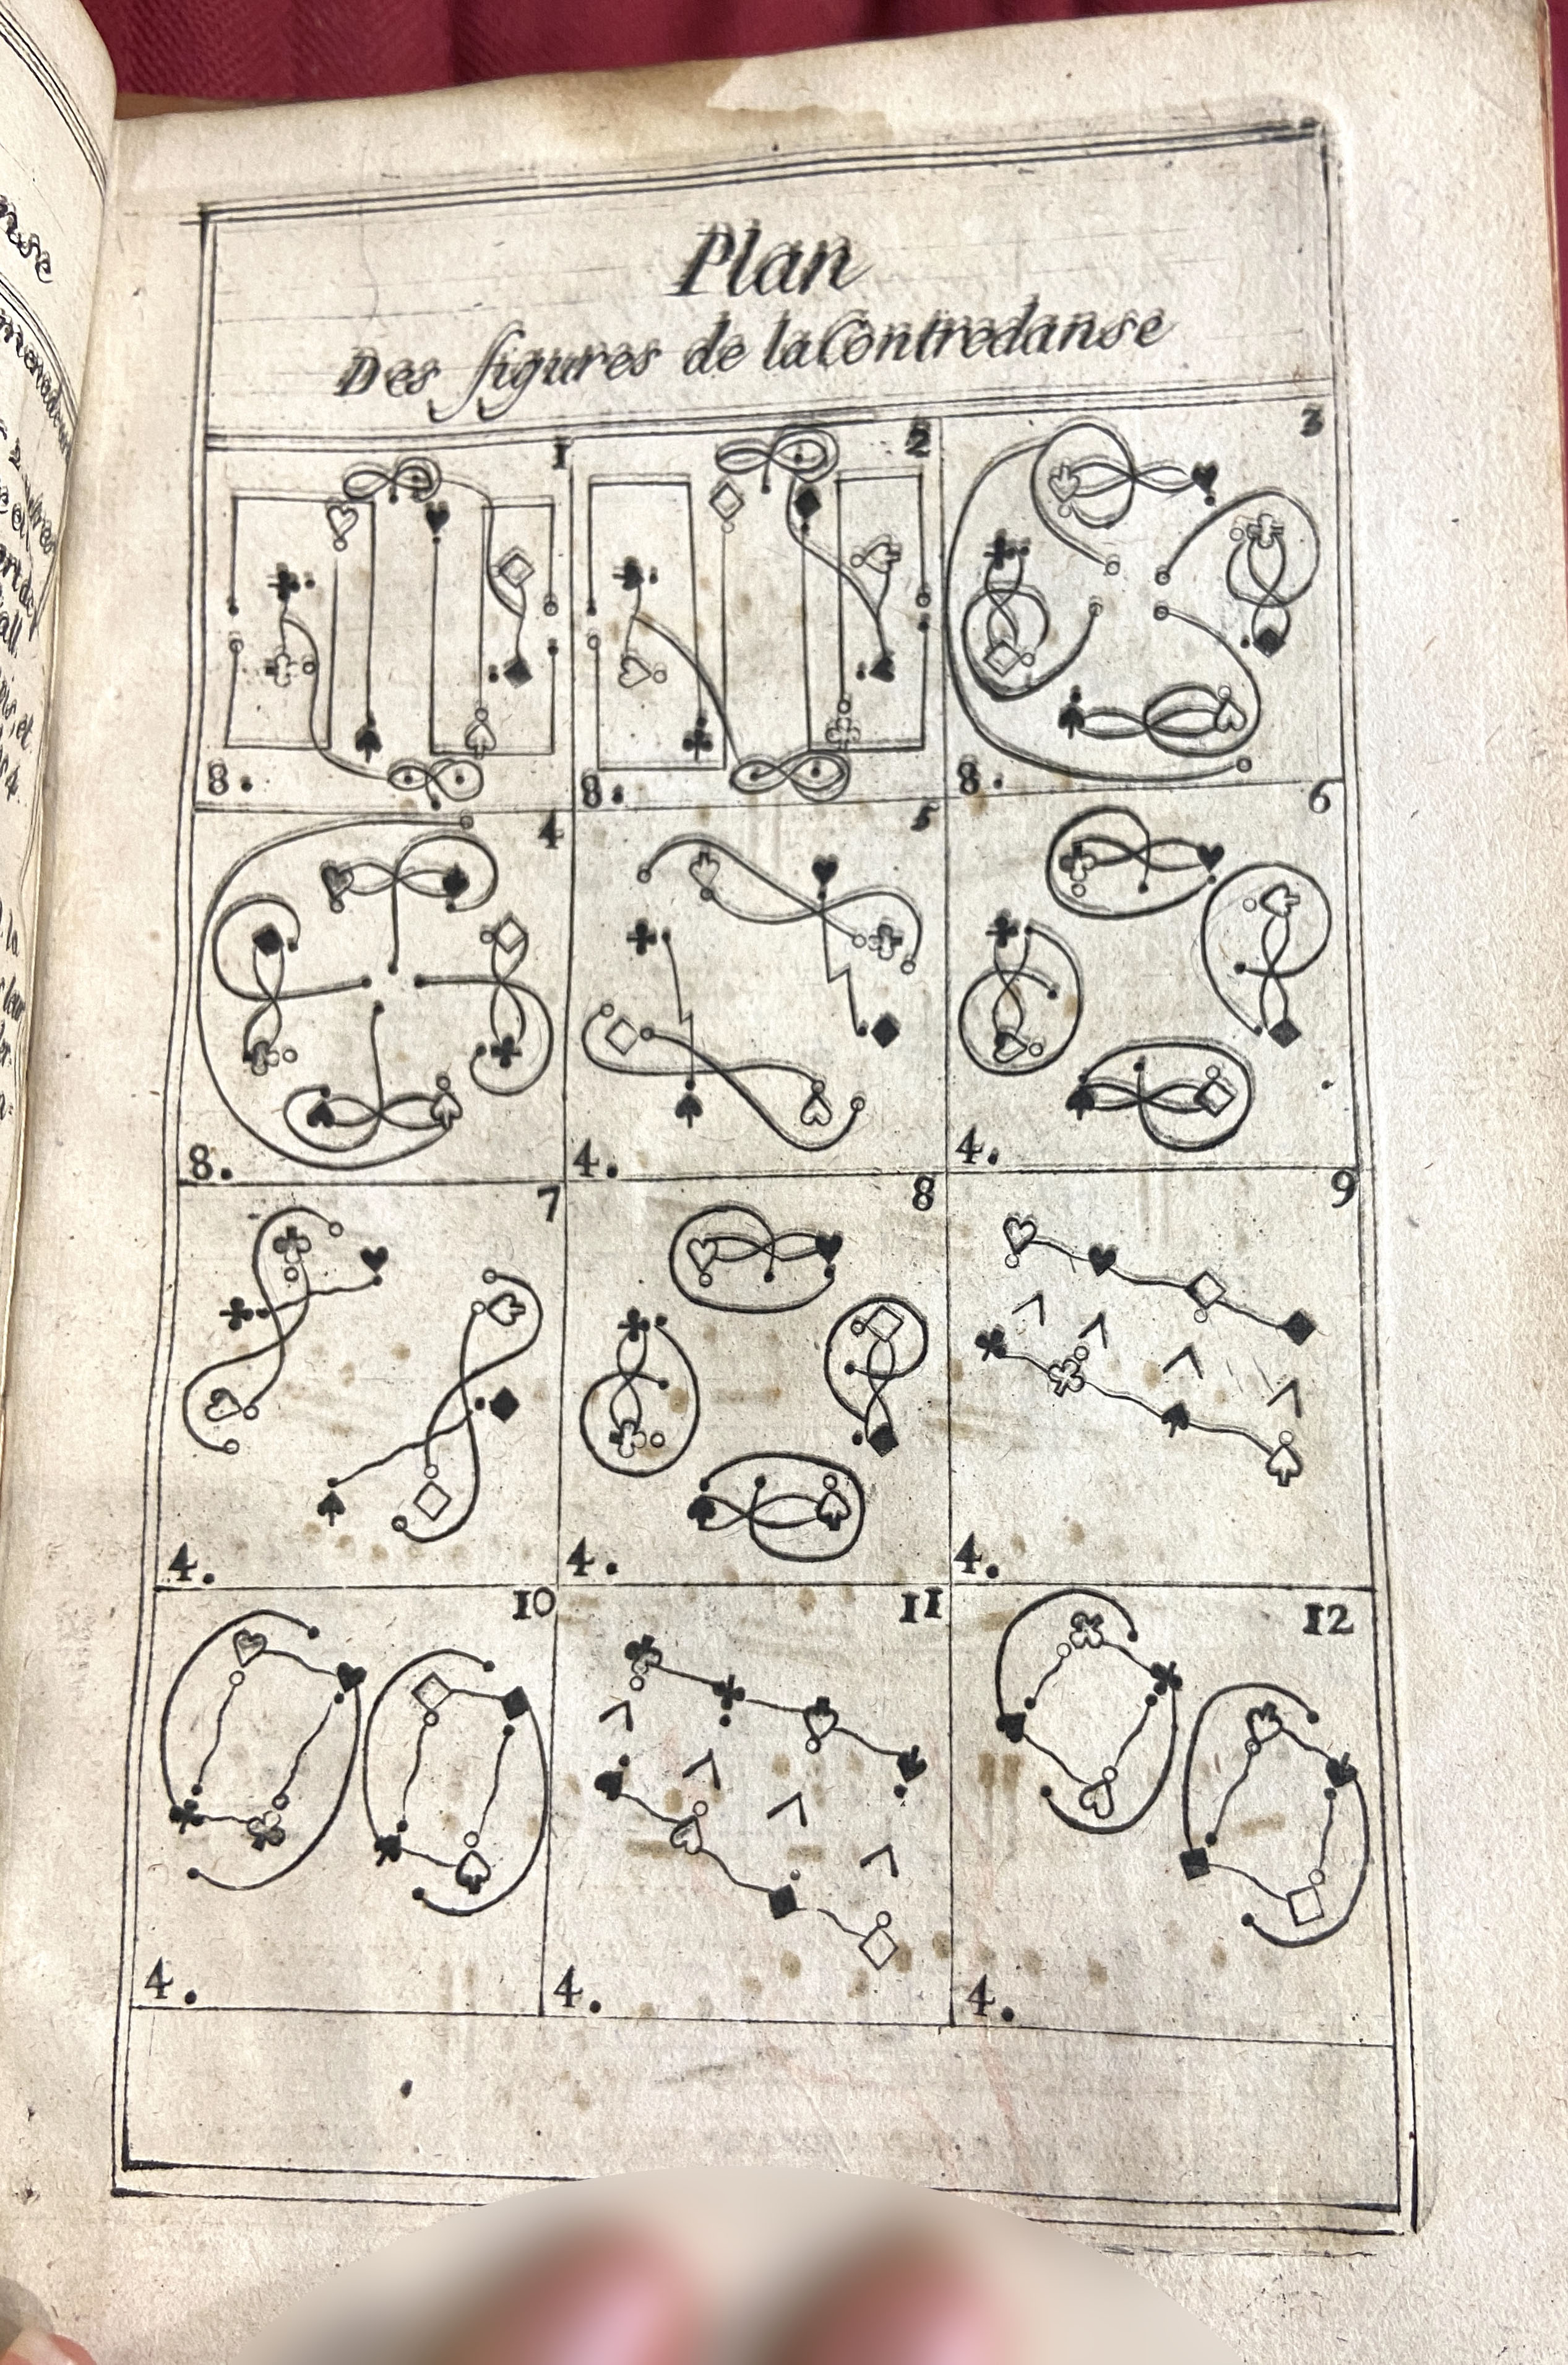 Plan
Des figures de la Contredanse
1
2
3
8.
8.
8.
4
5
6
8.
4.
4.
7
8
9
4.
4.
4.
10
11
12
4.
4.
4.